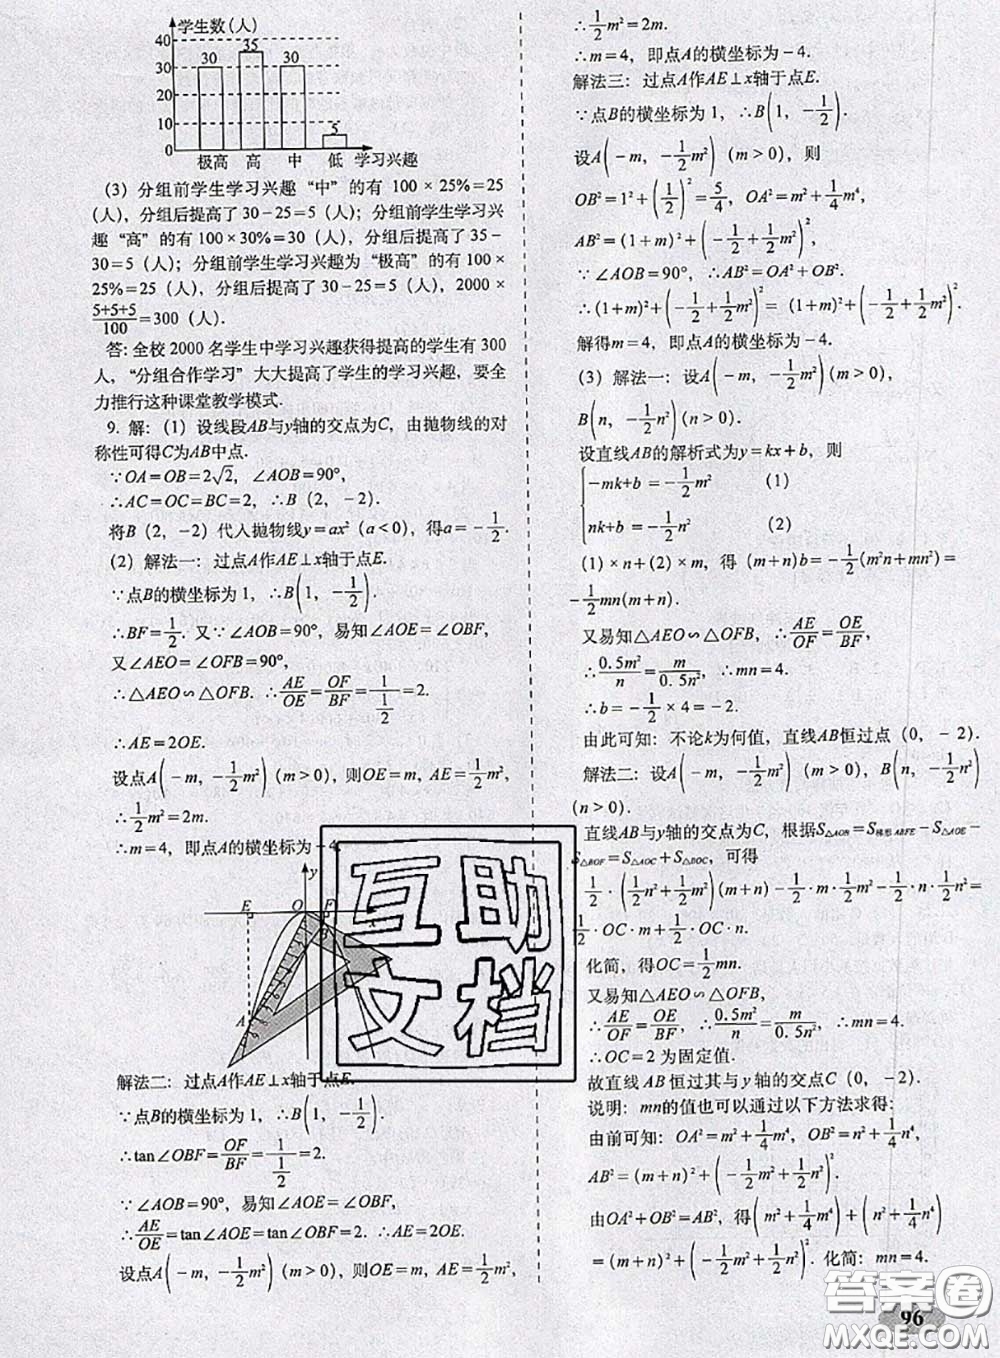 学生数(人)
40
30
20
10
0
30
35
30
5
极高 高 中 低 学习兴趣
(3) 分组前学生学习兴趣“中”的有 100×25%=25
(人), 分组后提高了 30-25=5 (人); 分组前学生学习兴
趣“高”的有 100×30%=30 (人), 分组后提高了 35-
30=5 (人); 分组前学生学习兴趣为“极高”的有 100
×25%=25 (人), 分组后提高了 30-25=5 (人), 2000×
(5+5+5)/100=300 (人).
答: 全校 2000 名学生中学习兴趣获得提高的学生有 300
人, “分组合作学习”大大提高了学生的学习兴趣, 要全
力推行这种课堂教学模式.
9. 解: (1) 设线段AB与y轴的交点为C, 由抛物线的对
称性可得C为AB中点.
∵OA=OB=2√2, ∠AOB=90°,
∴AC=OC=BC=2, ∴B (2, -2).
将B (2, -2) 代入抛物线y=ax² (a<0), 得a=-1/2.
(2) 解法一: 过点A作AE⊥x轴于点E.
∵点B的横坐标为 1, ∴B(1, -1/2).
∴BF=1/2. 又∵∠AOB=90°, 易知∠AOE=∠OBF,
又∠AEO=∠OFB=90°,
∴△AEO∽△OFB. ∴AE/OE=OF/BF=1/(1/2)=2.
∴AE=2OE.
设点A(-m, -1/2m²) (m>0), 则OE=m, AE=1/2m²,
∴1/2m²=2m.
∴m=4, 即点A的横坐标为-4.
E O F x y A B
解法二: 过点A作AE⊥x轴于点E.
∵点B的横坐标为 1, ∴B(1, -1/2).
∴tan∠OBF=OF/BF=1/(1/2)=2.
∵∠AOB=90°, 易知∠AOE=∠OBF,
∴AE/OE=tan∠AOE=tan∠OBF=2. ∴AE=2OE.
设点A(-m, -1/2m²) (m>0), 则OE=m, AE=1/2m²,
∴1/2m²=2m.
∴m=4, 即点A的横坐标为-4.
解法三: 过点A作AE⊥x轴于点E.
∵点B的横坐标为 1, ∴B(1, -1/2).
设A(-m, -1/2m²) (m>0), 则
OB²=1²+(1/2)²=5/4, OA²=m²+1/4m⁴,
AB²=(1+m)²+(-1/2+1/2m²)².
∵∠AOB=90°, ∴AB²=OA²+OB².
∴(1+m)²+(-1/2+1/2m²)²=(1+m)²+(-1/2+1/2m²)².
解得m=4, 即点A的横坐标为-4.
(3) 解法一: 设A(-m, -1/2m²) (m>0),
B(n, -1/2n²) (n>0).
设直线AB的解析式为y=kx+b, 则
{-mk+b=-1/2m² (1)
nk+b=-1/2n² (2)
(1)×n+(2)×m, 得 (m+n)b=-1/2(m²n+mn²)=
-1/2mn(m+n).
又易知△AEO∽△OFB, ∴AE/OF=OE/BF,
∴0.5m²/n=m/0.5n², ∴mn=4.
∴b=-1/2×4=-2.
由此可知: 不论k为何值, 直线AB恒过点 (0, -2).
解法二: 设A(-m, -1/2m²) (m>0), B(n, -1/2n²)
(n>0).
直线AB与y轴的交点为C, 根据S△AOB=S梯形ABFE-S△AOE-
S△BOF=S△AOC+S△BOC, 可得
1/2·(1/2n²+1/2m²)(m+n)-1/2·m·1/2m²-1/2·n·1/2n²=
1/2·OC·m+1/2·OC·n.
化简, 得OC=1/2mn.
又易知△AEO∽△OFB,
∴AE/OF=OE/BF, ∴0.5m²/n=m/0.5n², ∴mn=4.
∴OC=2 为固定值.
故直线AB恒过其与y轴的交点C (0, -2).
说明: mn的值也可以通过以下方法求得:
由前可知: OA²=m²+1/4m⁴, OB²=n²+1/4n⁴,
AB²=(m+n)²+(-1/2m²+1/2n²)².
由OA²+OB²=AB², 得(m²+1/4m⁴)+(n²+1/4n⁴)
=(m+n)²+(-1/2m²+1/2n²)². 化简: mn=4.
互助
文档
答案圈
MXQE.COM
96